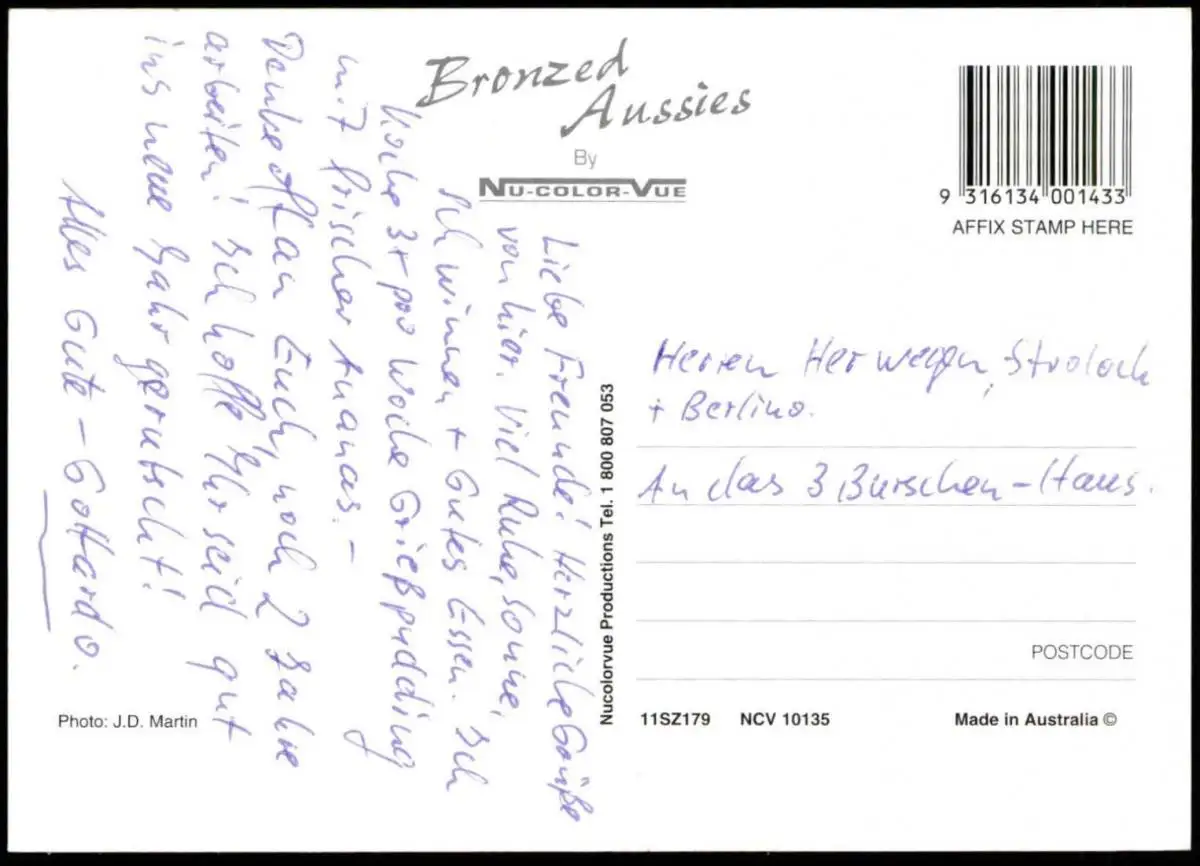 Bronzed
Aussies
By
NU-COLOR-VUE
9 316134 001433
AFFIX STAMP HERE
Liebe Freunde! Herzliche Grüße
von hier. Viel Ruhe, Sonne,
Schwimmen + Gutes Essen. Ich
koche 3x pro Woche Grießpudding
mit frischer Ananas. -
Denke oft an Euch, noch 2 Jahre
arbeiten! Ich hoffe, Ihr seid gut
ins neue Jahr gerutscht!
Alles Gute - Gottardo.
Nucolorvue Productions Tel. 1 800 807 053
Herren Herwegen, 
+ Berlino.
An das 3 Burschen-Haus.
POSTCODE
Photo: J.D. Martin
11SZ179 NCV 10135
Made in Australia ©